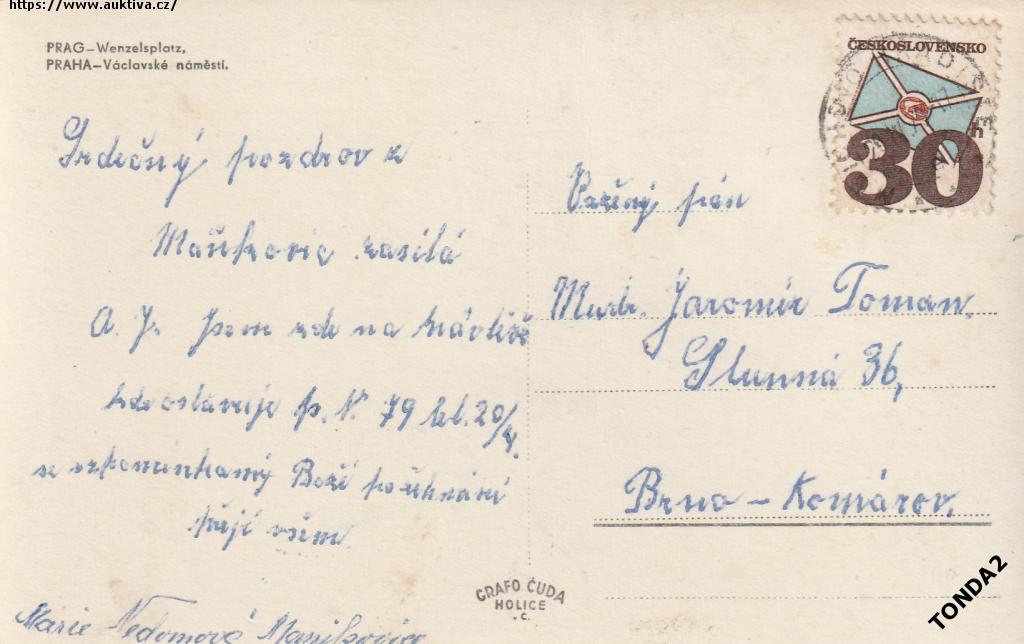 https://www.auktiva.cz/
PRAG–Wenzelsplatz,
PRAHA–Václavské náměstí.
ČESKOSLOVENSKO
30h
Srdečný pozdrov z
Maříkovic zasílá
A. J. Jsem zde na
p. N. 79 let. 20/4.
se vzpomínkamý Boží požehnání
přejí všem
Marie Nedomová
Vážený pán
Mudr. Jaromír Toman.
Slunná 36,
Brno – Komárov.
GRAFO ČUDA
HOLICE
v. C.
TONDA2